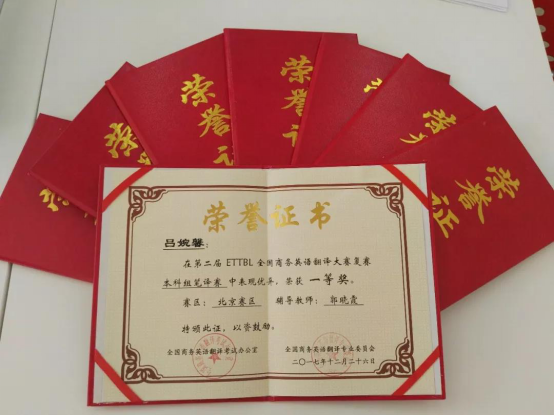 荣誉证
荣誉证
荣誉证
荣誉证
荣誉证书
吕婉馨：
在第二届 ETTBL 全国商务英语翻译大赛复赛
本科组笔译赛 中表现优异，荣获 一等奖。
赛区：北京赛区 辅导教师：郭晓霞
特颁此证，以资鼓励。
全国商务英语翻译考试办公室 全国商务英语翻译专业委员会
二〇一七年十二月二十六日